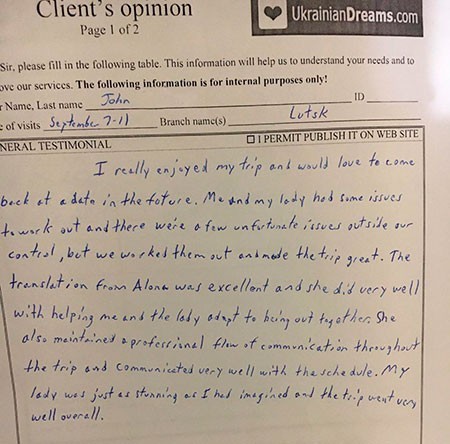 Client's opinion
Page 1 of 2
UkrainianDreams.com
Sir, please fill in the following table. This information will help us to understand your needs and to
ove our services. The following information is for internal purposes only!
r Name, Last name John ID
e of visits September 7-11 Branch name(s) Lutsk
NERAL TESTIMONIAL
I PERMIT PUBLISH IT ON WEB SITE
I really enjoyed my trip and would love to come
back at a date in the future. Me and my lady had some issues
to work out and there were a few unfutunate issues outside our
control, but we worked them out and made the trip great. The
translation from Alona was excellent and she did very well
with helping me and the lady adapt to being out together. She
also maintained a professional flow of communication throughout
the trip and communicated very well with the schedule. My
lady was just as stunning as I had imagined and the trip went very
well overall.